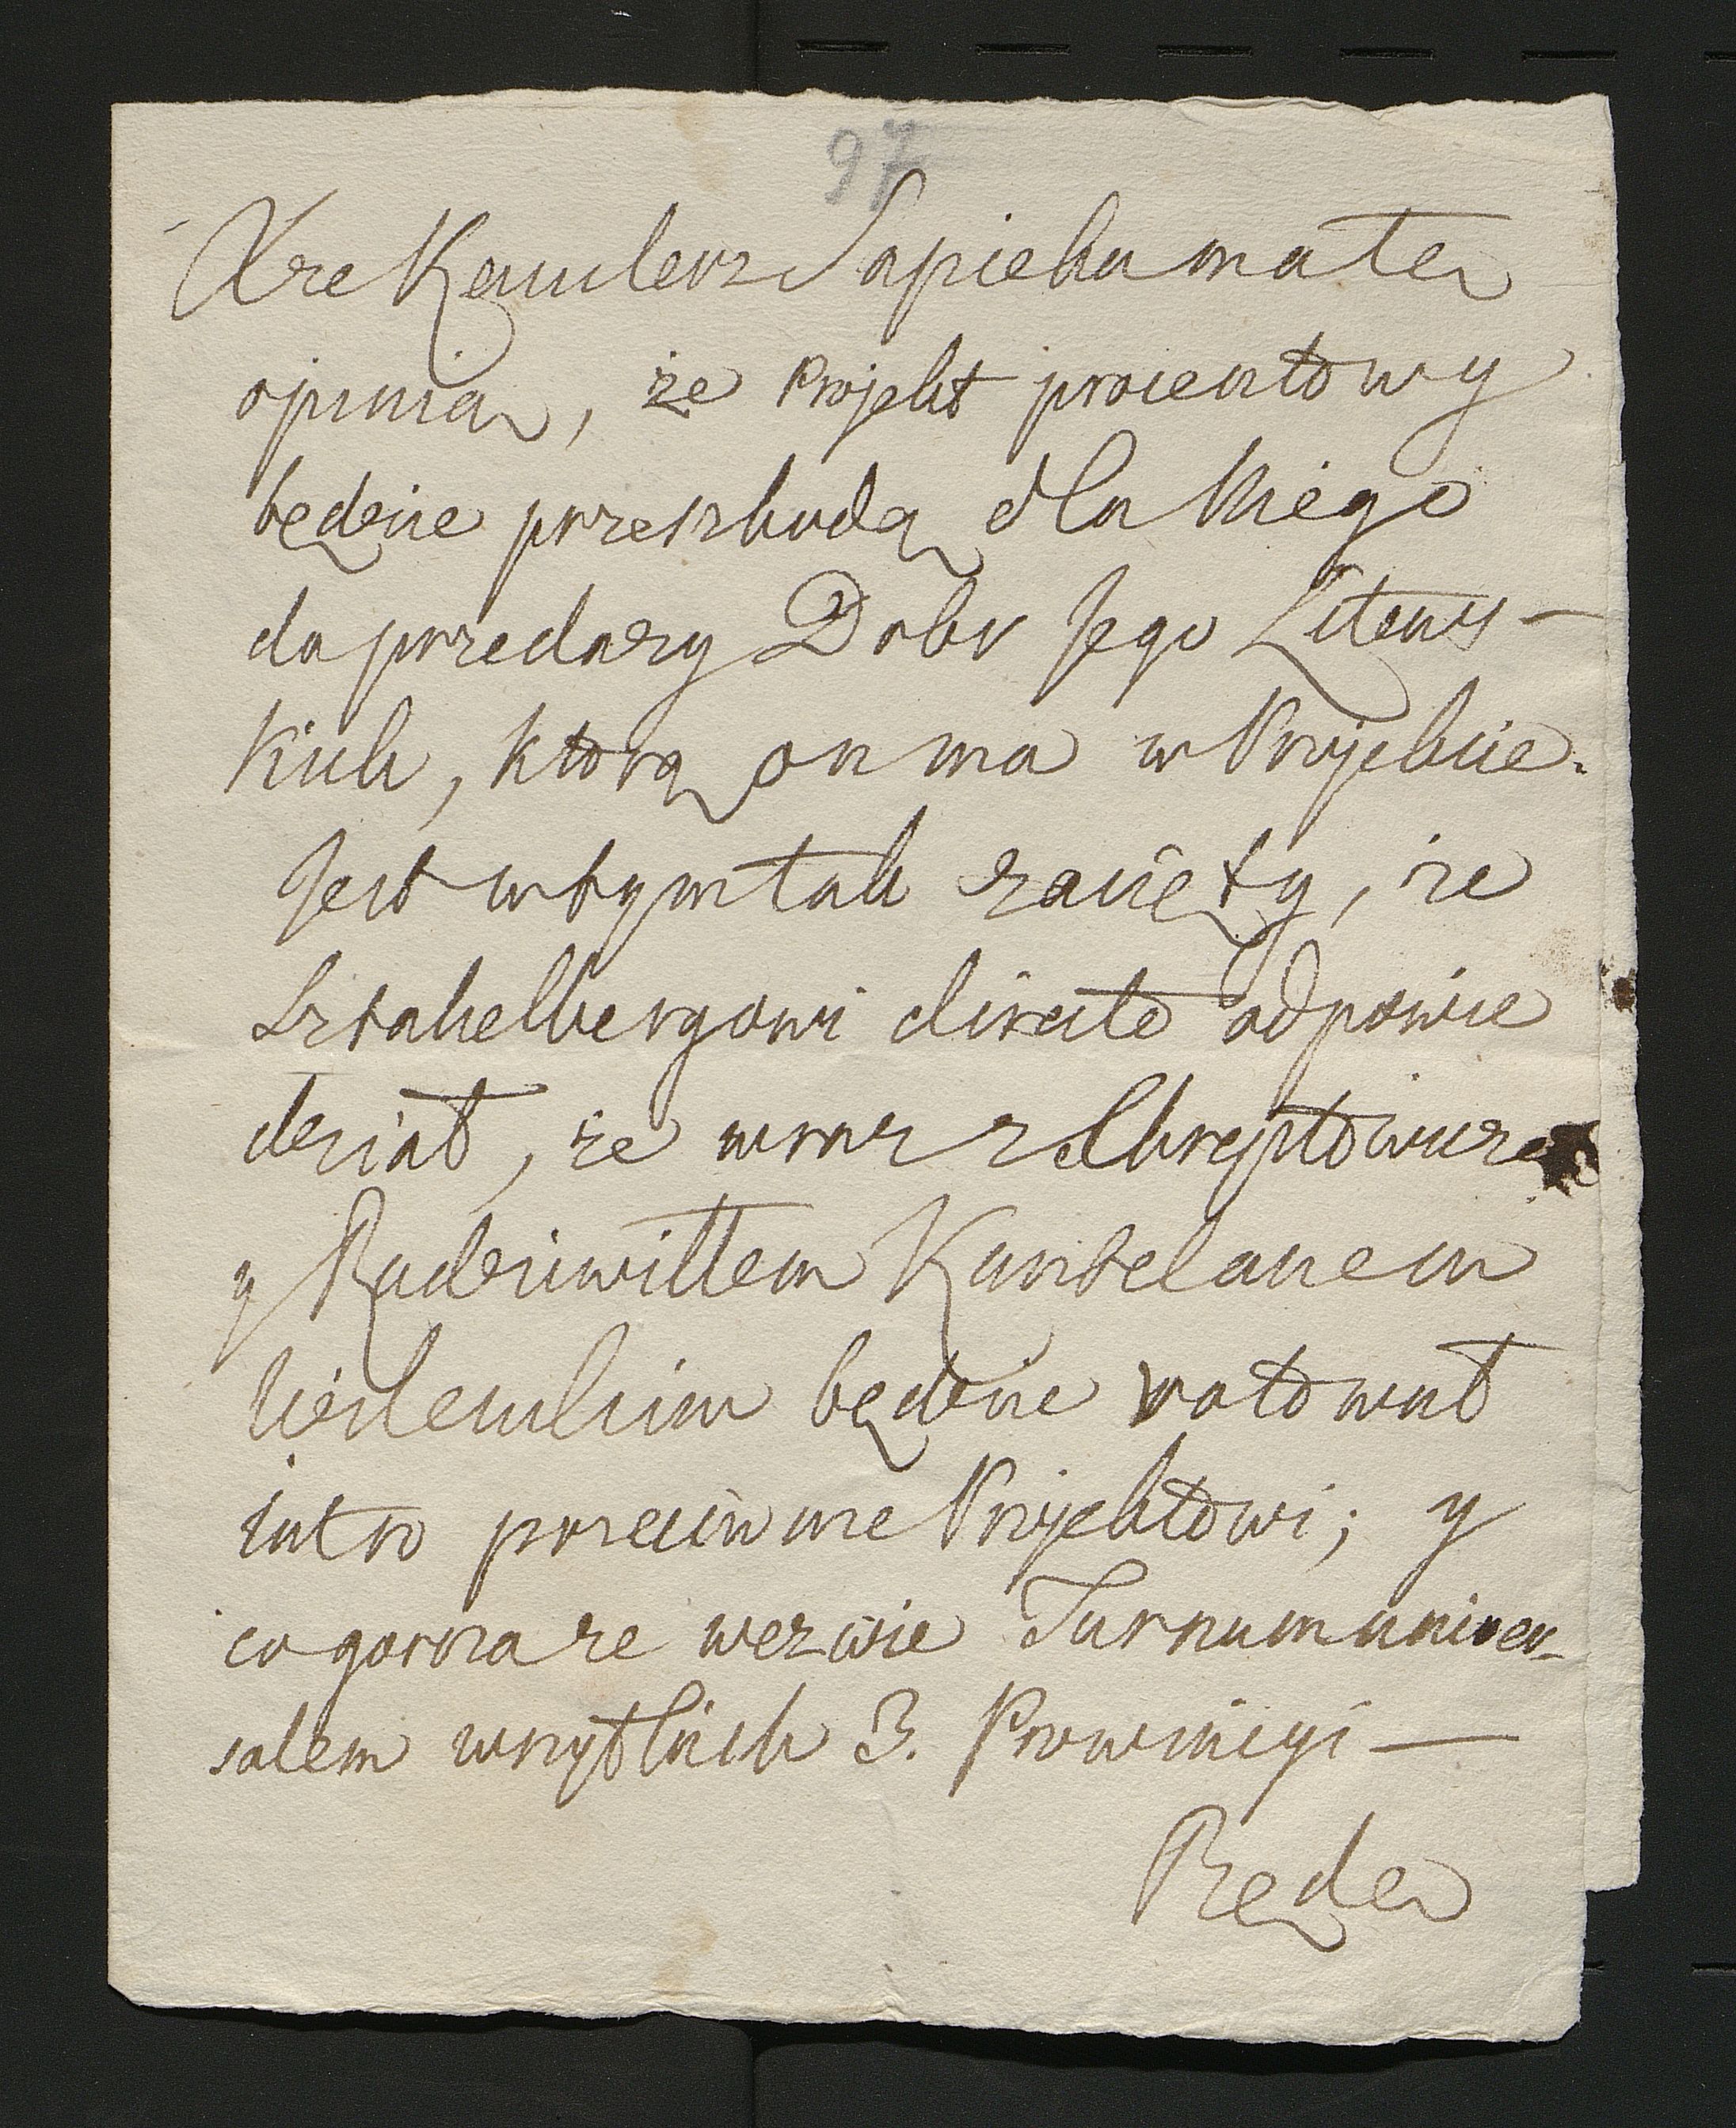 97
Xze Kanclerz Sapieha ma tę
opinią, że Projekt procentowy
będzie przeszkodą dla Niego
do przedazy Dobr Jego Litews-
kich, ktorą on ma w Projekcie.
Jest w tym tak zacięty, że
Sztakelbergowi directe odpowie
dział, że wraz z Chreptowicze
y Radziwiłłem Kasztelanem
Wilenskim będzie wotował
iutro przeciwne Projektowi; y
co gorsza że wezwie Turnum univer-
salem wszystkich 3. Prowincyi —
Będę